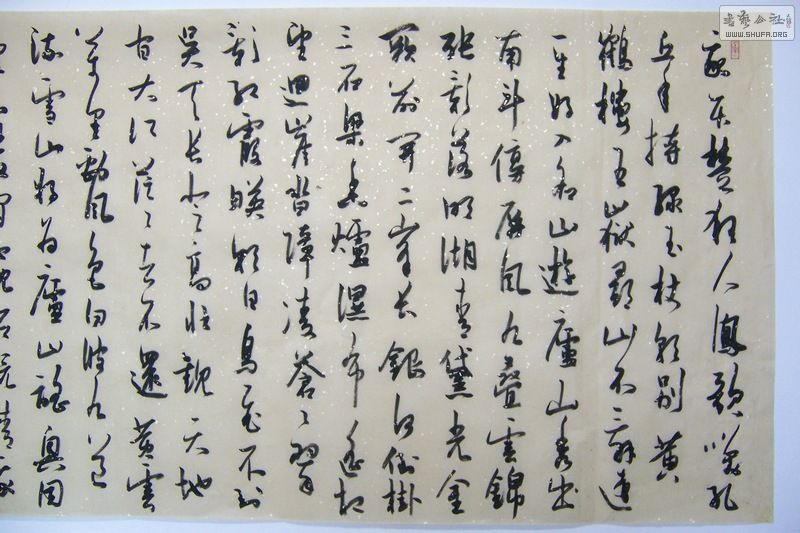 我本楚狂人鳳歌笑孔
丘手持綠玉杖朝別黃
鶴樓五嶽尋山不辭遠
一生好入名山遊廬山秀出
南斗傍屏風九疊雲錦
張影落明湖青黛光金
闕前開二峰長銀河倒掛
三石梁香爐瀑布遙相
望迴崖沓障凌蒼〻翠
影紅霞映朝日鳥飛不到
吳天長登高壯觀天地
間大江茫〻去不還黃雲
萬里動風色白波九道
流雪山好為廬山謠興因
閑窺石鏡清我
書藝公社
WWW.SHUFA.ORG